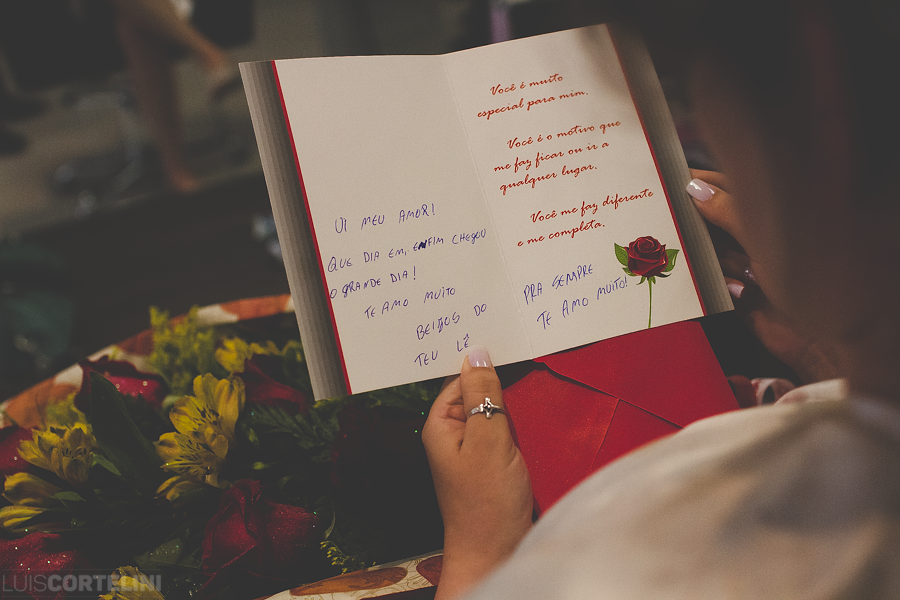 OI MEU AMOR!
QUE DIA EM, ENFIM CHEGOU
O GRANDE DIA!
TE AMO MUITO
BEIJOS DO
TEU LÊ
Você é muito
especial para mim.
Você é o motivo que
me faz ficar ou ir a
qualquer lugar.
Você me faz diferente
e me completa.
PRA SEMPRE
TE AMO MUITO!
LUISCORTELINI